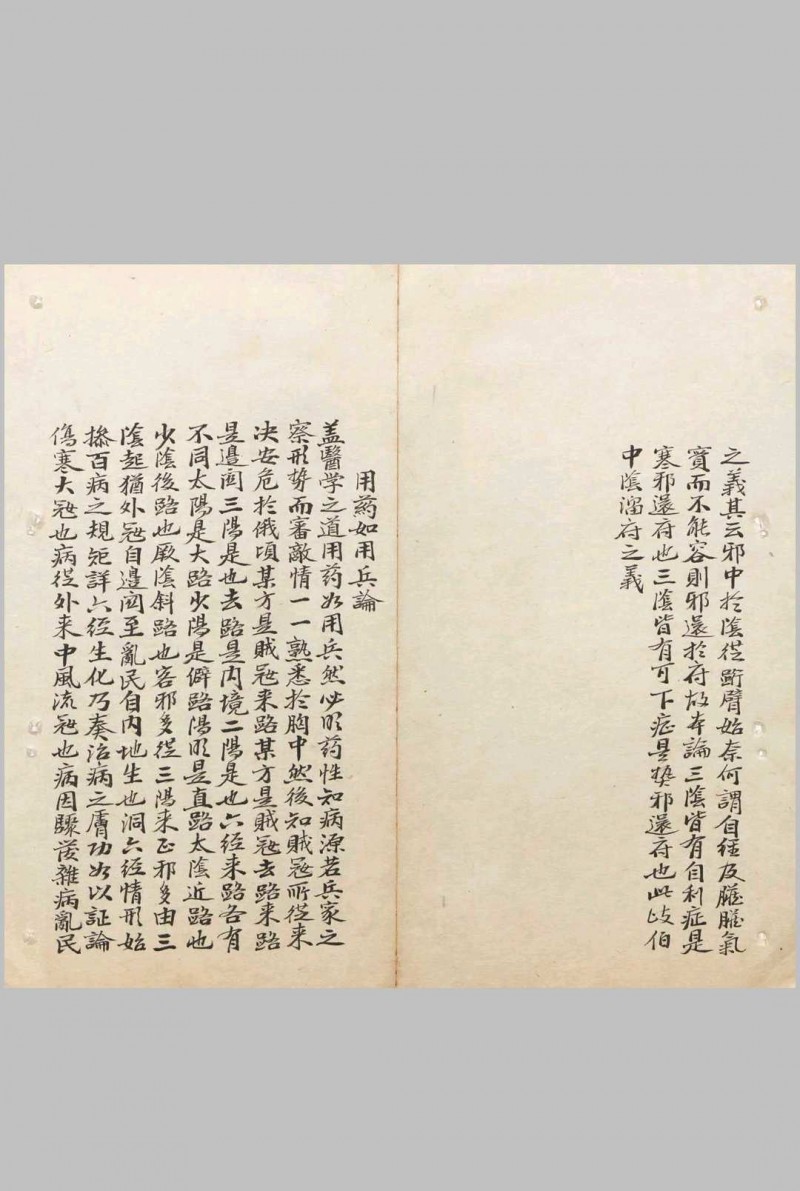 之義其云邪中於陰從䯒臂始奈何謂自經及臟臟氣
實而不能容則邪還於府故本論三陰皆有自利症是
寒邪還府也三陰皆有可下症是熱邪還府也此岐伯
中陰溜府之義
用药如用兵論
盖醫学之道用药如用兵然必明药性知病源若兵家之
察形势而審敵情一一熟悉於胸中然後知賊冦所從来
决安危於俄頃某方是賊冦来路某方是賊冦去路来路
是邉関三陽是也去路是内境二陽是也六経来路各有
不同太陽是大路少陽是僻路陽明是直路太陰近路也
少陰後路也厥陰斜路也客邪多從三陽来正邪多由三
陰起猶外冦自邉関至亂民自内地生也洞六経情形始
操百病之規矩詳六经生化乃奏治病之膚功如以証論
傷寒大冦也病從外来中風流冦也病因驟發雜病亂民